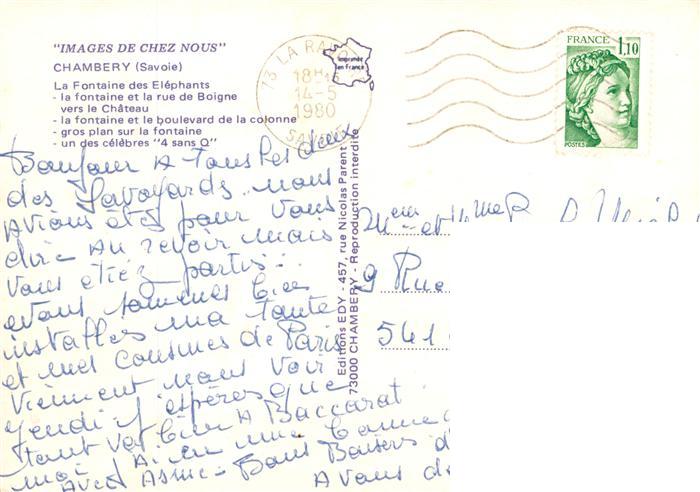 "IMAGES DE CHEZ NOUS"
CHAMBERY (Savoie)
La Fontaine des Eléphants
- la fontaine et la rue de Boigne
vers le Château
- la fontaine et le boulevard de la colonne
- gros plan sur la fontaine
- un des célèbres "4 sans Q"
73 LA RA
18H
14-5
1980
SAVOIE
imprimée
en France
FRANCE
1,10
POSTES
Bonjour A Tous Les deux
des Savoyards nous
Avions étés pour vous
dire Au revoir mais
vous étiez partis
nous sommes bien
installés ma tante
et mes cousines de Paris
viennent nous voir
jeudi j'espères que
tout va bien A Baccarat
moi Ai en une
Avec Asme Bons Baisers
A vous d
Editions EDY - 457, rue Nicolas Parent
73000 CHAMBERY - Reproduction interdite
et
9 Rue
541